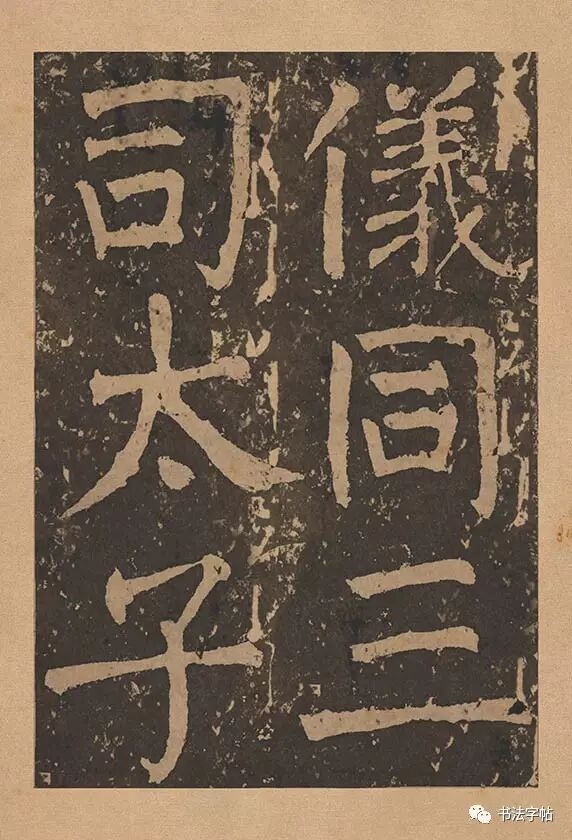 儀同三
司太子
书法字帖